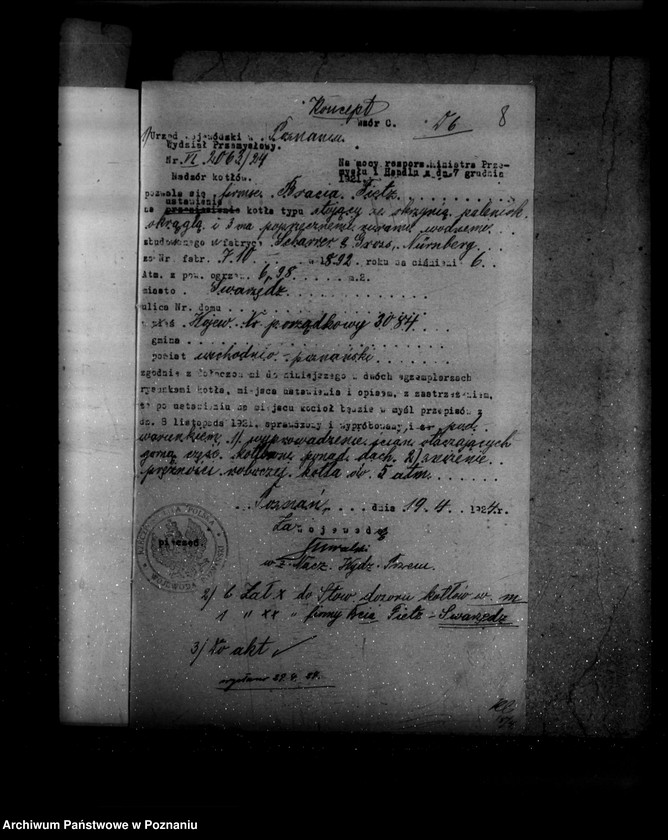 Koncept
Wzór C.
D6
8
1/ Urząd Wojewódzki w Poznaniu.
Wydział Przemysłowy.
Nr. VI 2063/24
Nadzór kotłów.
Na mocy rozporz. Ministra Prze-
mysłu i Handlu z dn. 7 grudnia
1921
pozwala się firmie Bracia Tietz
ustawienie
na kotła typu stojący ze skrzynią palenisk.
okrągłą i 3 ma poprzecznemi rurami wodnemi
zbudowanego w fabryce Scharrer & Gross, Nürnberg.
za Nr. fabr. 710 w 1892 roku na ciśnieni 6.
Atm. z pow. ogrzew. 6,98 m.2.
miasto Swarzędz
ulica Nr. domu
Wojew. No porządkowy 3084
gmina
powiat wschodnio-poznański
zgodnie z dołączonemi do niniejszego w dwóch egzemplarzach
rysunkami kotła, miejsca ustawienia i opisem, z zastrzeżeniem,
że po ustawieniu na miejscu kocioł będzie w myśl przepisów z
dn. 8 listopada 1921. sprawdzony i wypróbowany, i pod
warunkiem, 1/ wyprowadzenie ścian otaczających
górną część kotłowni ponad dach. 2/
prężności roboczej kotła do 5 atm.
Poznań, dnia 19. 4. 1924 r.
Za Wojewodę
pieczęć
w z. Nacz. Wydz. Przem.
2/ 6 Zał x do Stow. dozoru kotłów w m
" " xx " firmy Bcia Tietz - Swarzędz
3/ Do akt
wysłano
Archiwum Państwowe w Poznaniu